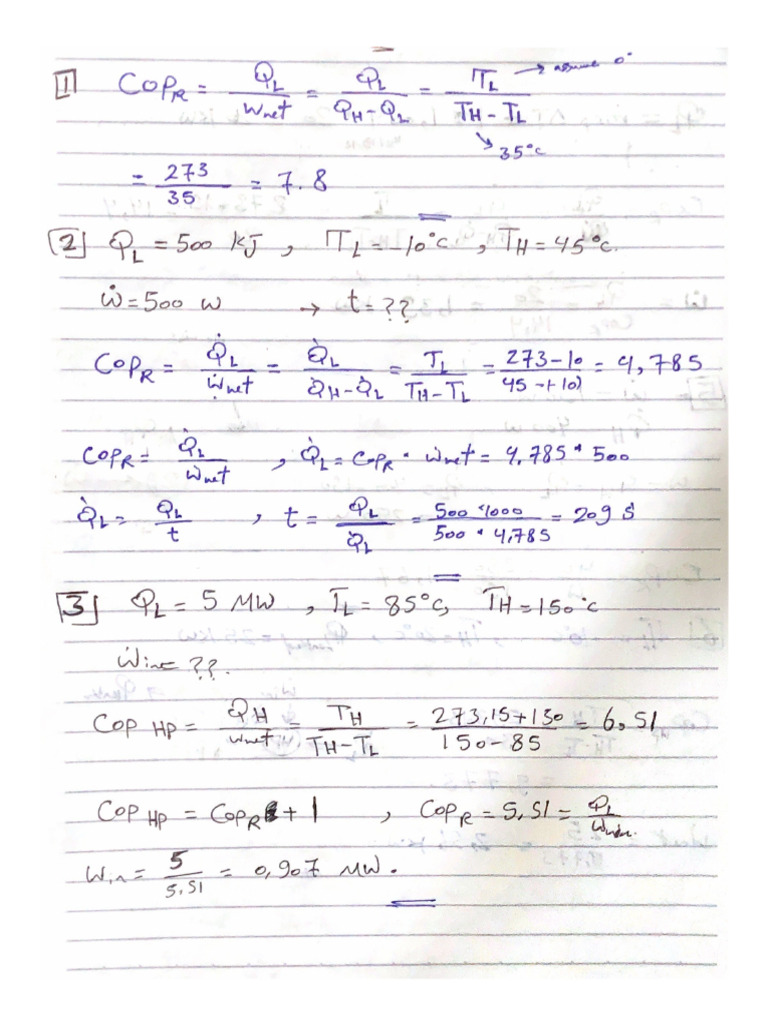 1 COP_R = Q_L / W_net = Q_L / (Q_H - Q_L) = T_L / (T_H - T_L) → assume 0°
↘ 35°C
= 273 / 35 = 7.8
2 Q_L = 500 kJ , T_L = -10°C , T_H = 45°C.
Ẇ = 500 W → t = ??
COP_R = Q̇_L / Ẇ_net = Q̇_L / (Q̇_H - Q̇_L) = T_L / (T_H - T_L) = (273 - 10) / (45 -+10) = 4,785
COP_R = Q̇_L / Ẇ_net , Q̇_L = COP_R * Ẇ_net = 4.785 * 500
Q̇_L = Q_L / t , t = Q_L / Q̇_L = (500 * 1000) / (500 * 4,785) = 209 S
3 Q_L = 5 MW , T_L = 85°C, T_H = 150°C
Ẇ_in = ??.
COP_HP = Q_H / W_net = T_H / (T_H - T_L) = (273,15 + 150) / (150 - 85) = 6,51
COP_HP = COP_R + 1 , COP_R = 5,51 = Q_L
W_in = 5 / 5,51 = 0,907 MW.